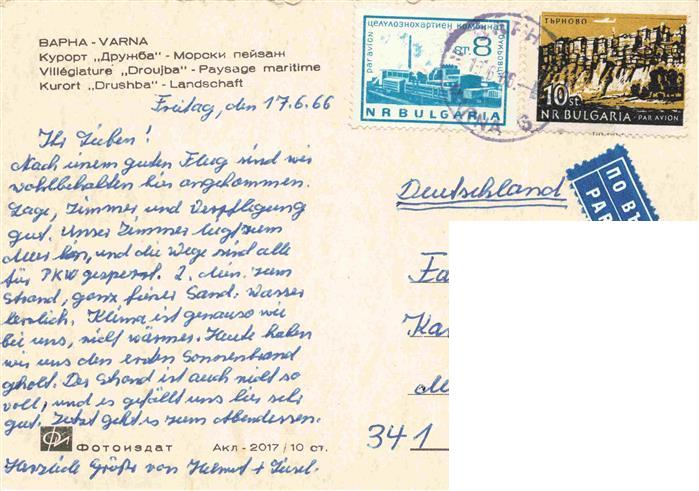 ВАРНА - VARNA
Курорт „Дружба" - Морски пейзаж
Villégiature „Droujba" - Paysage maritime
Kurort „Drushba" - Landschaft
Freitag, den 17.6.66
Ihr Lieben!
Nach einem guten Flug sind wir
wohlbehalten hier angekommen.
Lage, Zimmer und Verpflegung
gut. Unser Zimmer liegt zum
Meer hin, und die Wege sind alle
für PKW gesperrt. 2. Min. zum
Strand, ganz feiner Sand. Wasser
herrlich. Klima ist genauso wie
bei uns, nicht wärmer. Heute haben
wir uns den ersten Sonnenbrand
geholt. Der Strand ist auch nicht so
voll, und es gefällt uns hier sehr
gut. Jetzt geht es zum Abendessen.
ФОТОИЗДАТ Акл - 2017 / 10 ст.
Herzliche Grüße von Helmut +
целулознохартиен комбинат
par avion
ST. 8
NR BULGARIA
ТЪРНОВО
10 st.
NR BULGARIA - PAR AVION
Deutschland
ПО ВЪ
PAR
Fa
Ka
341